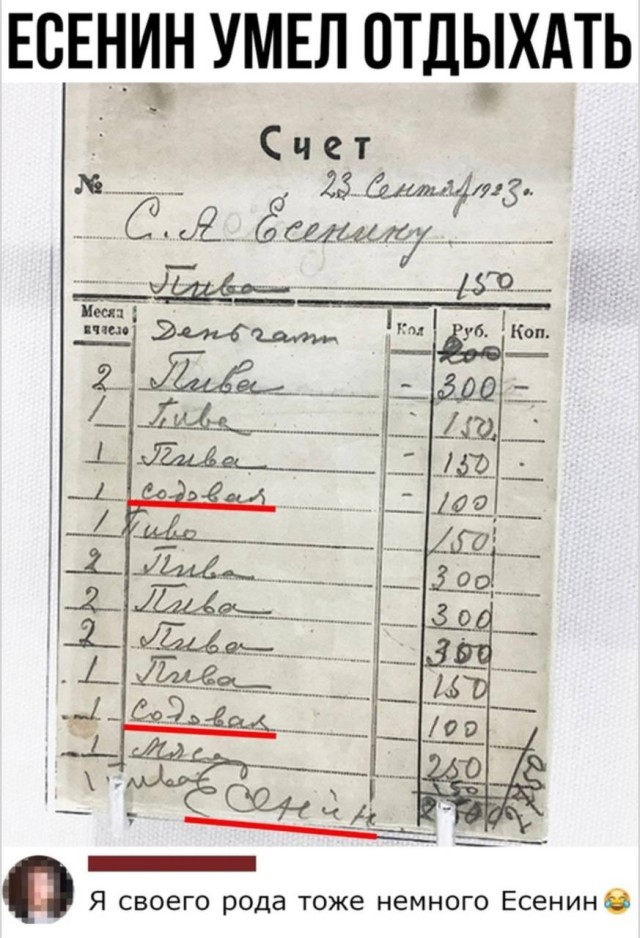 ЕСЕНИН УМЕЛ ОТДЫХАТЬ
Счет
№ 23 Сентяб 1923 г.
С. А Есенину
Пива 150
Месяц и число Деньгами Кол Руб. Коп.
200
2 Пива - 300 -
1 Пива - 150 -
1 Пива - 150 -
1 Содовая - 100
1 Пиво 150
2 Пива 300
2 Пива 300
2 Пива 300
1 Пива 150
1 Содовая 100
1 Мясо 250
1 Пива 150
Есенин
Я своего рода тоже немного Есенин😂